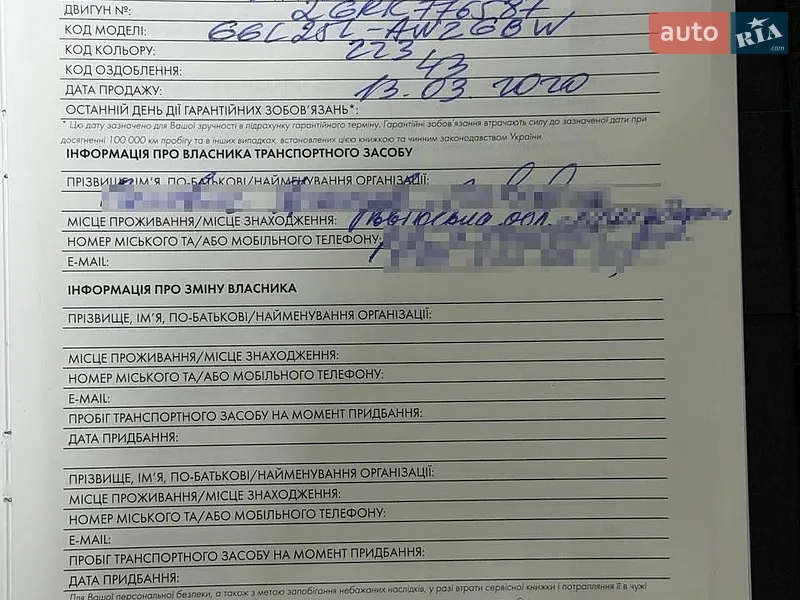 auto RIA .com
ДВИГУН №: 2GRK776587
КОД МОДЕЛІ: GGL25L-AWZGBW
КОД КОЛЬОРУ: 223
КОД ОЗДОБЛЕННЯ: 43
ДАТА ПРОДАЖУ: 13.03 2020
ОСТАННІЙ ДЕНЬ ДІЇ ГАРАНТІЙНИХ ЗОБОВ'ЯЗАНЬ*:
* Цю дату зазначено для Вашої зручності в підрахунку гарантійного терміну. Гарантійні зобов'язання втрачають силу до зазначеної дати при
досягненні 100 000 км пробігу та в інших випадках, встановлених цією книжкою та чинним законодавством України.
ІНФОРМАЦІЯ ПРО ВЛАСНИКА ТРАНСПОРТНОГО ЗАСОБУ
ПРІЗВИЩЕ, ІМ'Я, ПО-БАТЬКОВІ/НАЙМЕНУВАННЯ ОРГАНІЗАЦІЇ:
МІСЦЕ ПРОЖИВАННЯ/МІСЦЕ ЗНАХОДЖЕННЯ: обл.
НОМЕР МІСЬКОГО ТА/АБО МОБІЛЬНОГО ТЕЛЕФОНУ:
E-MAIL:
ІНФОРМАЦІЯ ПРО ЗМІНУ ВЛАСНИКА
ПРІЗВИЩЕ, ІМ'Я, ПО-БАТЬКОВІ/НАЙМЕНУВАННЯ ОРГАНІЗАЦІЇ:
МІСЦЕ ПРОЖИВАННЯ/МІСЦЕ ЗНАХОДЖЕННЯ:
НОМЕР МІСЬКОГО ТА/АБО МОБІЛЬНОГО ТЕЛЕФОНУ:
E-MAIL:
ПРОБІГ ТРАНСПОРТНОГО ЗАСОБУ НА МОМЕНТ ПРИДБАННЯ:
ДАТА ПРИДБАННЯ:
ПРІЗВИЩЕ, ІМ'Я, ПО-БАТЬКОВІ/НАЙМЕНУВАННЯ ОРГАНІЗАЦІЇ:
МІСЦЕ ПРОЖИВАННЯ/МІСЦЕ ЗНАХОДЖЕННЯ:
НОМЕР МІСЬКОГО ТА/АБО МОБІЛЬНОГО ТЕЛЕФОНУ:
E-MAIL:
ПРОБІГ ТРАНСПОРТНОГО ЗАСОБУ НА МОМЕНТ ПРИДБАННЯ:
ДАТА ПРИДБАННЯ:
Для Вашої персональної безпеки, а також з метою запобігання небажаних наслідків, у разі втрати сервісної книжки і потрапляння її в чужі